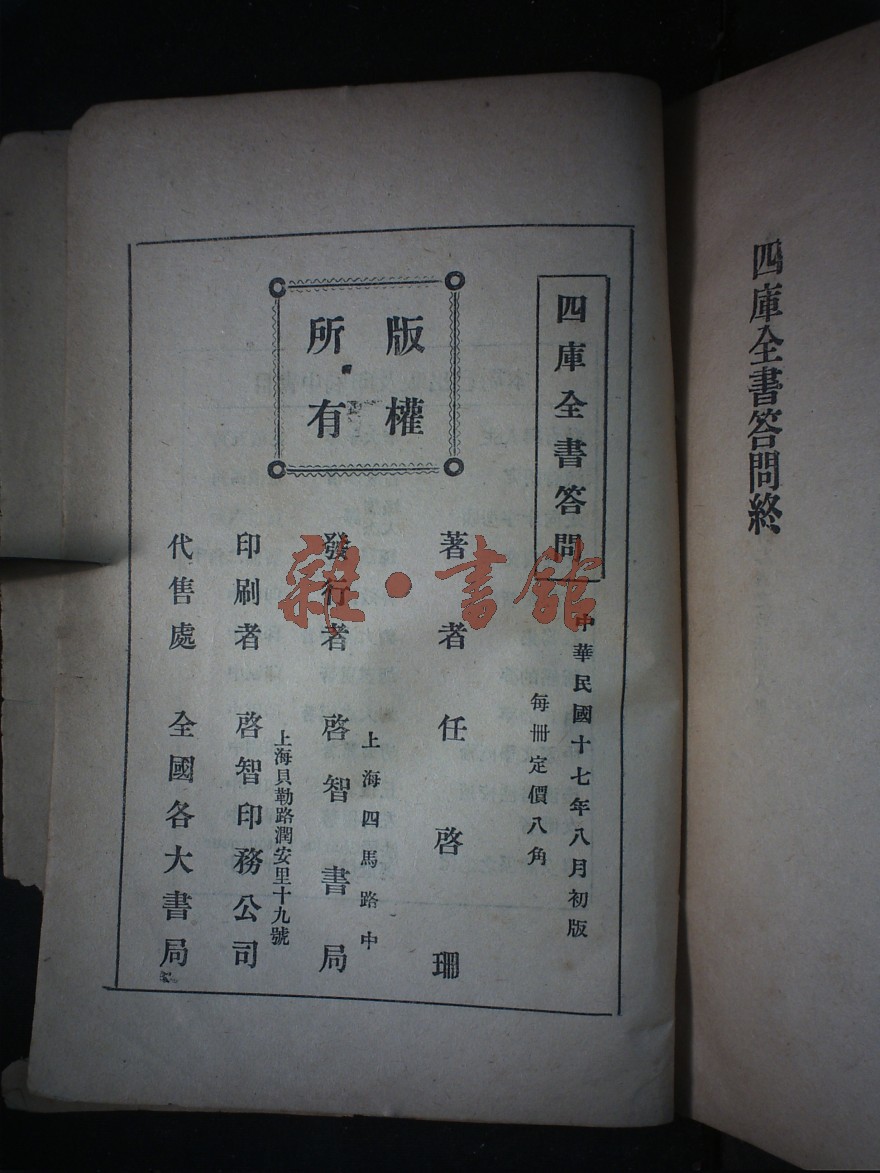 四庫全書答問終
四庫全書答問
中華民國十七年八月初版
每冊定價八角
版權
所有
著者任啓珊
上海四馬路中
發行者啓智書局
上海貝勒路潤安里十九號
印刷者啓智印務公司
代售處全國各大書局
雜·書館